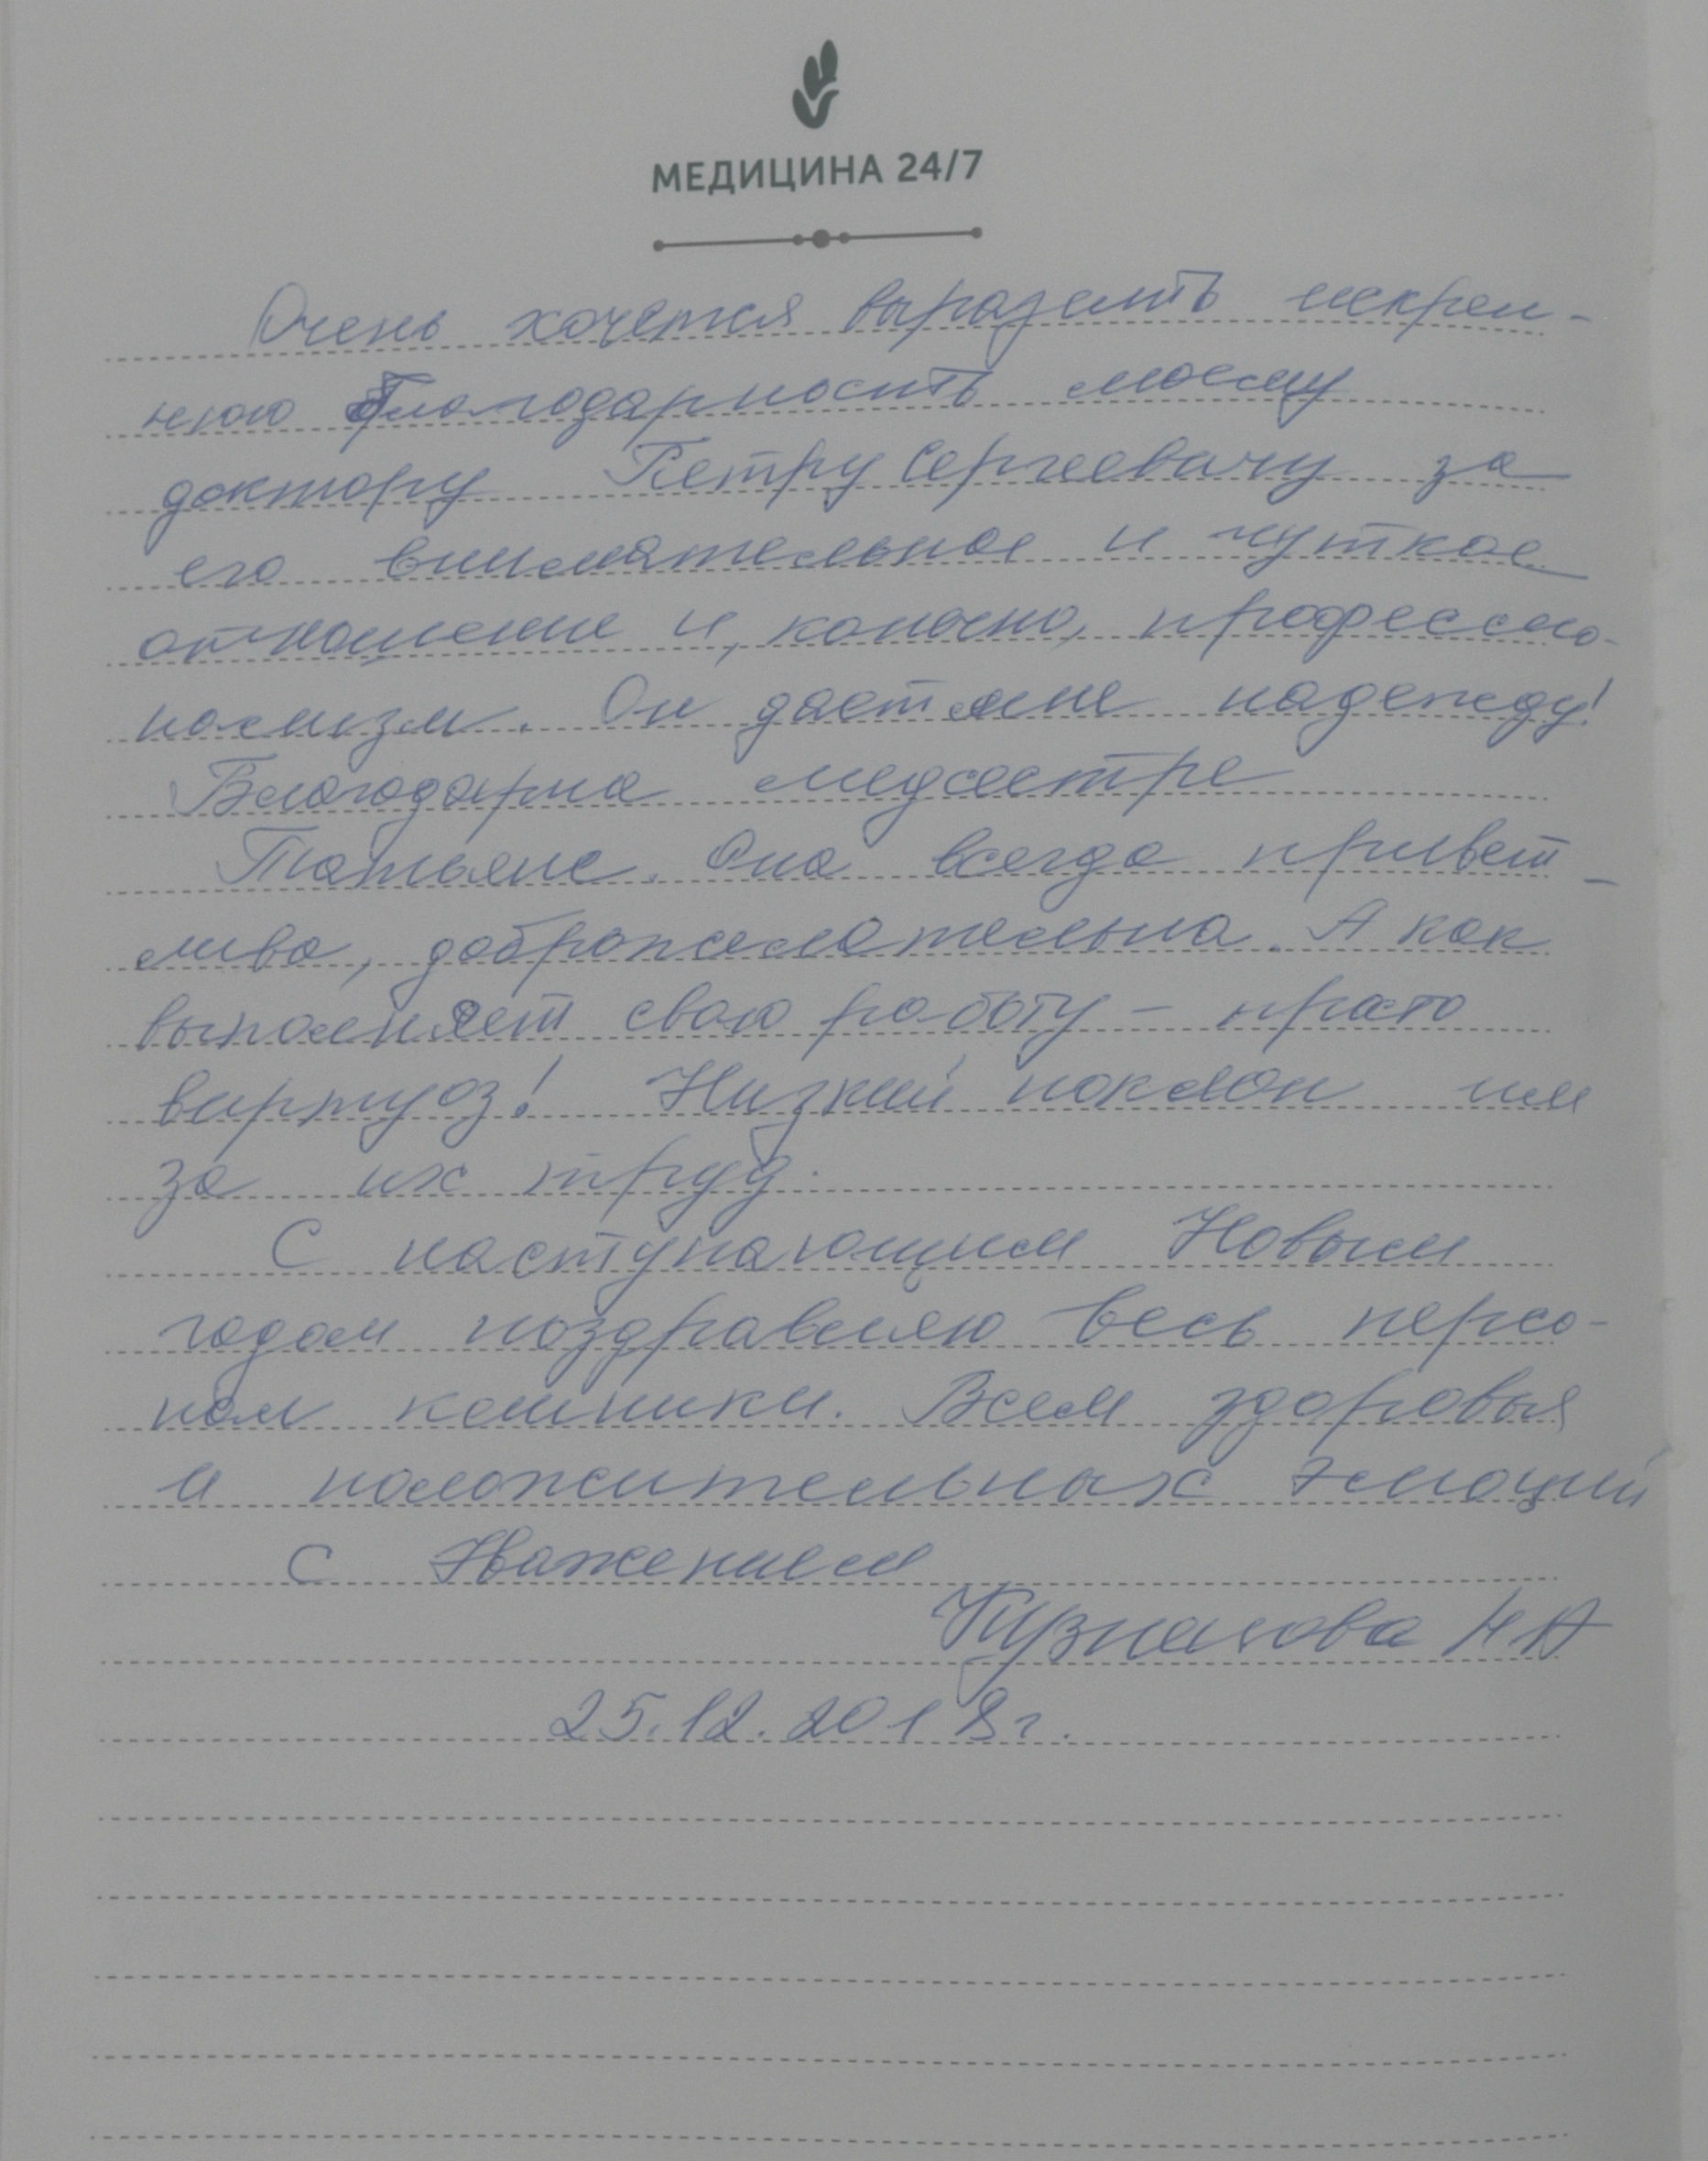 МЕДИЦИНА 24/7
Очень хочется выразить искрен-
нюю благодарность моему
доктору Петру Сергеевичу за
его внимательное и чуткое
отношение и, конечно, профессио-
нализм. Он дает мне надежду!
Благодарна медсестре
Татьяне. Она всегда привет-
лива, доброжелательна. А как
выполняет свою работу - просто
виртуоз! Низкий поклон им
за их труд.
С наступающим Новым
годом поздравляю весь персо-
нал клиники. Всем здоровья
и положительных эмоций
С Уважением
Н.А
25.12.2018г.